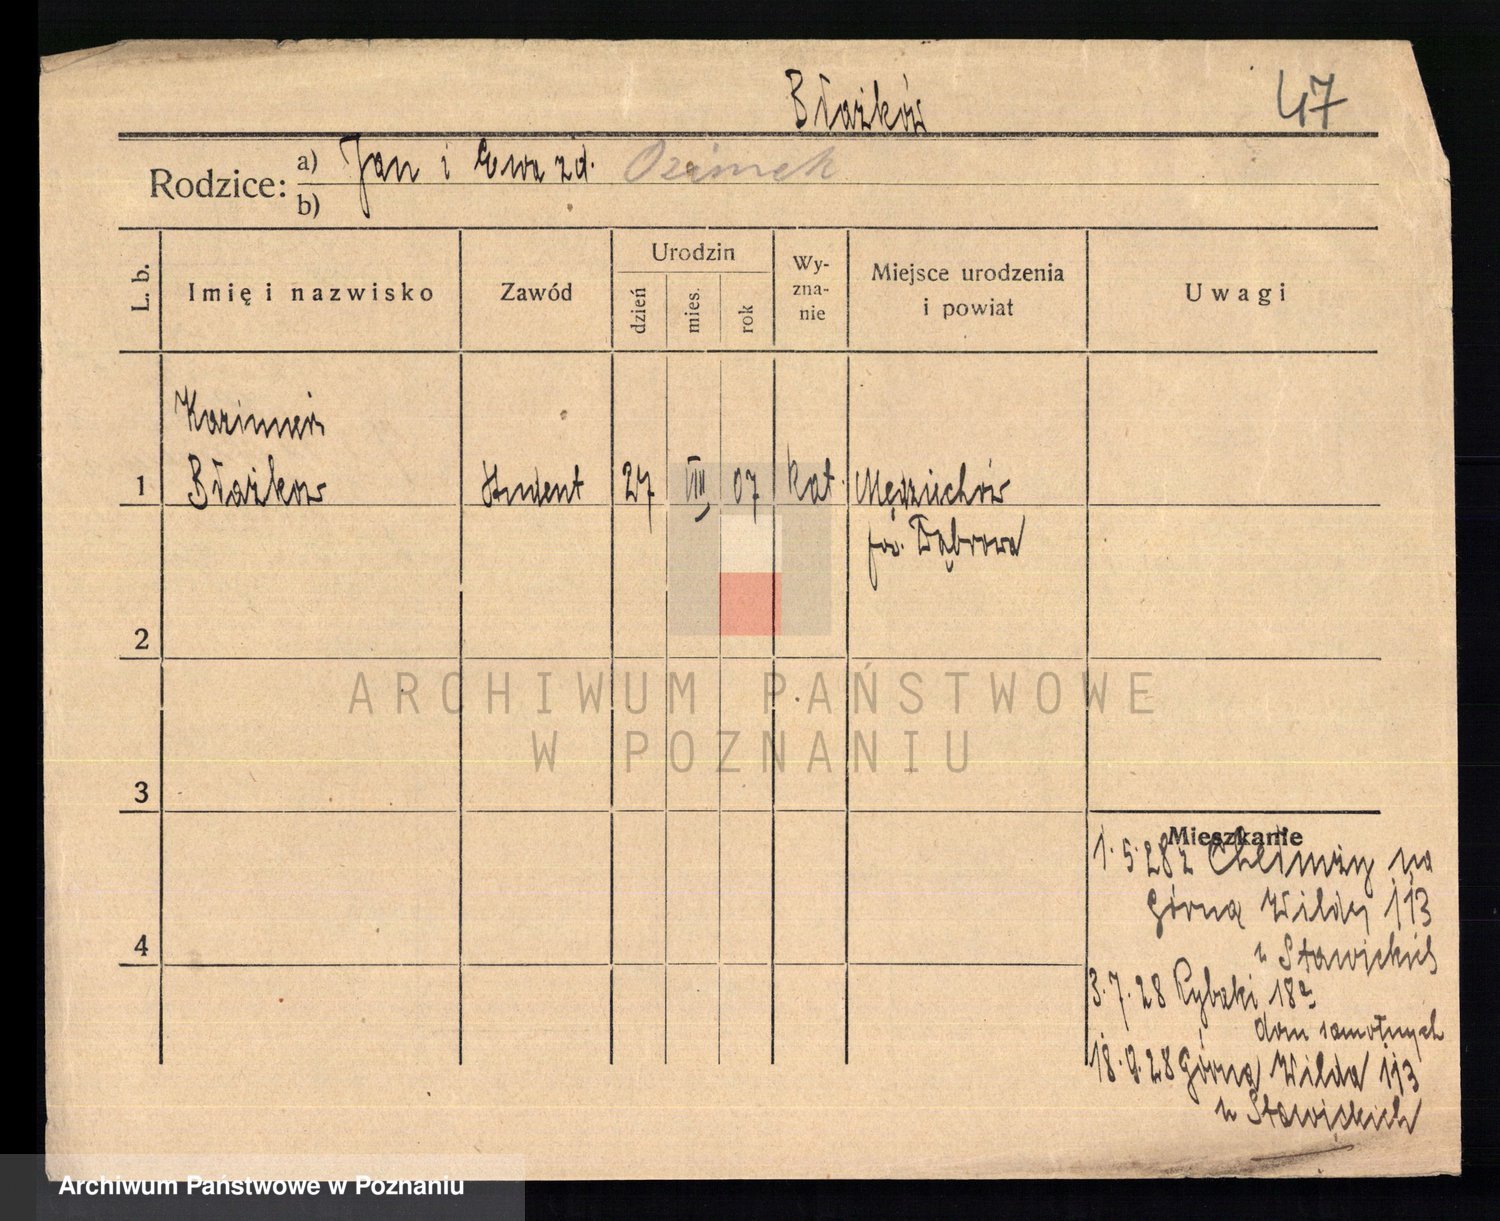 Błażków
47
Rodzice:
a) Jan i Ewa zd. Ozimek
b)
L. b.
Imię i nazwisko
Zawód
Urodzin
dzień
mies.
rok
Wy-
zna-
nie
Miejsce urodzenia
i powiat
Uwagi
Kazimierz
1 Błażkow student 27 VIII 07 kat. Mędrzechów
pow. Dąbrowa
2
3
4
ARCHIWUM PAŃSTWOWE
W POZNANIU
Mieszkanie
1.5.28 z Chełmży na
Górna Wilda 113
u Stawickich
3.7.28 Rybaki 18a
dom samotnych
18.9.28 Górna Wilda 113
u Stawickich
Archiwum Państwowe w Poznaniu